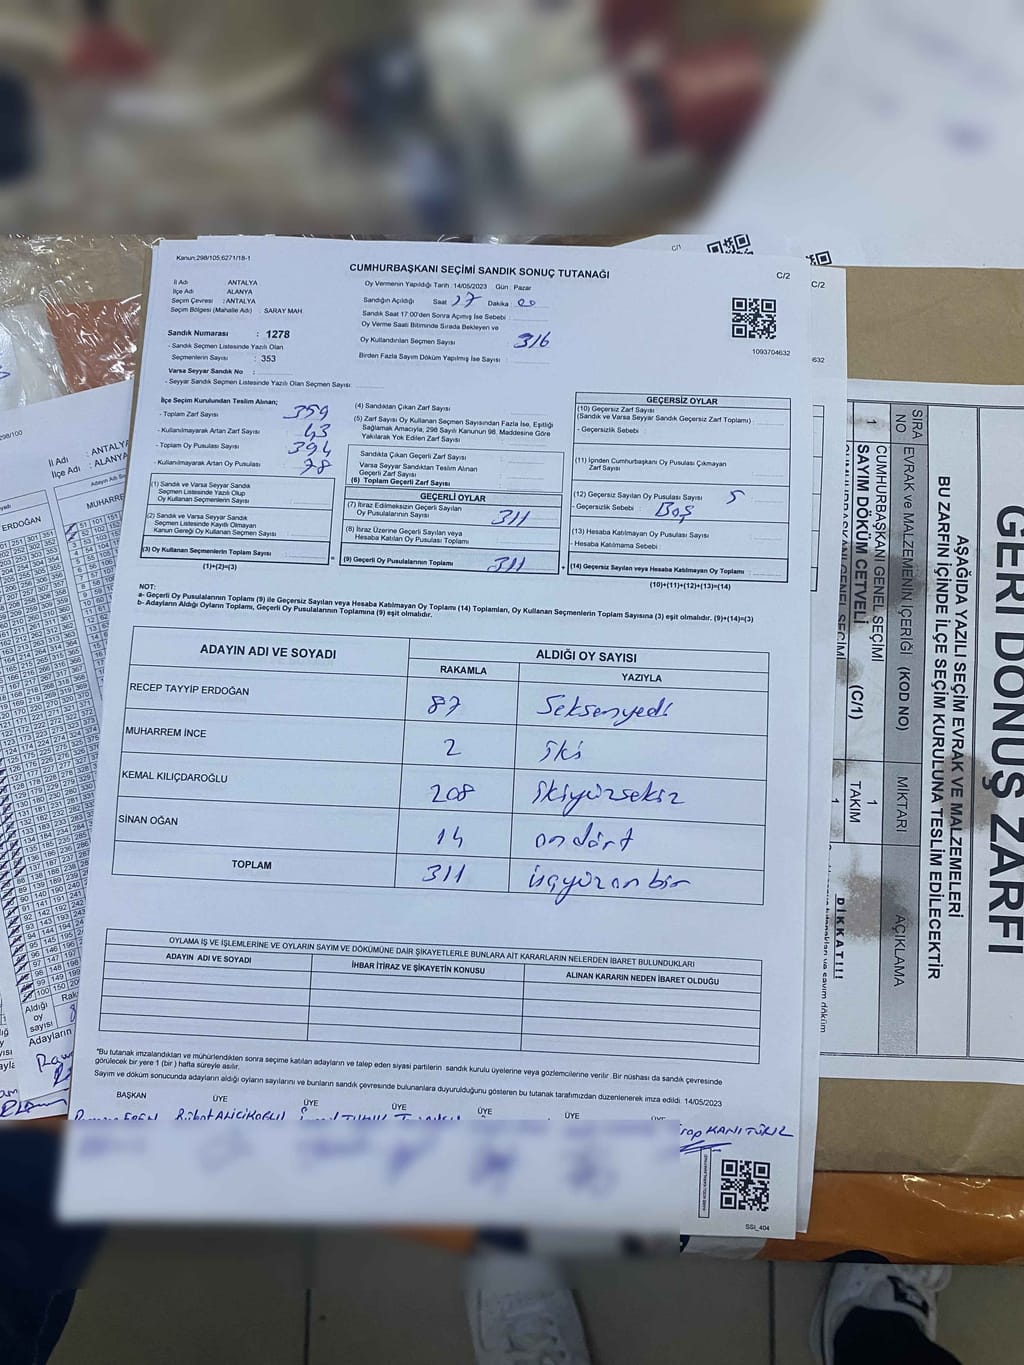 Kanun;298/105;6271/18-1
CUMHURBAŞKANI SEÇİMİ SANDIK SONUÇ TUTANAĞI
C/2
İl Adı ANTALYA
İlçe Adı ALANYA
Seçim Çevresi : ANTALYA
Seçim Bölgesi (Mahalle Adı) : SARAY MAH
Sandık Numarası : 1278
- Sandık Seçmen Listesinde Yazılı Olan
Seçmenlerin Sayısı : 353
Varsa Seyyar Sandık No :
- Seyyar Sandık Seçmen Listesinde Yazılı Olan Seçmen Sayısı:
Oy Vermenin Yapıldığı Tarih :14/05/2023 Gün Pazar
Sandığın Açıldığı Saat 17 Dakika 00
Sandık Saat 17:00'den Sonra Açımış İse Sebebi :
Oy Verme Saati Bitiminde Sırada Bekleyen ve
Oy Kullandırılan Seçmen Sayısı 316
Birden Fazla Sayım Döküm Yapılmış İse Sayısı :
1093704632
İlçe Seçim Kurulundan Teslim Alınan;
- Toplam Zarf Sayısı 359
- Kullanılmayarak Artan Zarf Sayısı 43
- Toplam Oy Pusulası Sayısı 394
- Kullanılmayarak Artan Oy Pusulası 78
(1) Sandık ve Varsa Seyyar Sandık
Seçmen Listesinde Yazılı Olup
Oy Kullanan Seçmenlerin Sayısı
(2) Sandık ve Varsa Seyyar Sandık
Seçmen Listesinde Kayıtlı Olmayan
Kanun Gereği Oy Kullanan Seçmen Sayısı
(3) Oy Kullanan Seçmenlerin Toplam Sayısı
(1)+(2)=(3)
(4) Sandıktan Çıkan Zarf Sayısı
(5) Zarf Sayısı Oy Kullanan Seçmen Sayısından Fazla İse, Eşitliği
Sağlamak Amacıyla; 298 Sayılı Kanunun 98. Maddesine Göre
Yakılarak Yok Edilen Zarf Sayısı
Sandıkta Çıkan Geçerli Zarf Sayısı
Varsa Seyyar Sandıktan Teslim Alınan
Geçerli Zarf Sayısı
(6) Toplam Geçerli Zarf Sayısı
GEÇERLİ OYLAR
(7) İtiraz Edilmeksizin Geçerli Sayılan
Oy Pusulalarının Sayısı 311
(8) İtiraz Üzerine Geçerli Sayılan veya
Hesaba Katılan Oy Pusulası Toplamı
(9) Geçerli Oy Pusulalarının Toplamı 311
GEÇERSİZ OYLAR
(10) Geçersiz Zarf Sayısı
(Sandık ve Varsa Seyyar Sandık Geçersiz Zarf Toplamı)
- Geçersizlik Sebebi :
(11) İçinden Cumhurbaşkanı Oy Pusulası Çıkmayan
Zarf Sayısı
(12) Geçersiz Sayılan Oy Pusulası Sayısı 5
- Geçersizlik Sebebi : Boş
(13) Hesaba Katılmayan Oy Pusulası Sayısı
- Hesaba Katılmama Sebebi :
(14) Geçersiz Sayılan veya Hesaba Katılmayan Oy Toplamı
(10)+(11)+(12)+(13)=(14)
NOT:
a- Geçerli Oy Pusulalarının Toplamı (9) ile Geçersiz Sayılan veya Hesaba Katılmayan Oy Toplamı (14) Toplamları, Oy Kullanan Seçmenlerin Toplam Sayısına (3) eşit olmalıdır. (9)+(14)=(3)
b- Adayların Aldığı Oyların Toplamı, Geçerli Oy Pusulalarının Toplamına (9) eşit olmalıdır.
ADAYIN ADI VE SOYADI ALDIĞI OY SAYISI
RAKAMLA YAZIYLA
RECEP TAYYİP ERDOĞAN 87 Seksenyedi
MUHARREM İNCE 2 iki
KEMAL KILIÇDAROĞLU 208 ikiyüzsekiz
SİNAN OĞAN 14 on dört
TOPLAM 311 üçyüzonbir
OYLAMA İŞ VE İŞLEMLERİNE VE OYLARIN SAYIM VE DÖKÜMÜNE DAİR ŞİKAYETLERLE BUNLARA AİT KARARLARIN NELERDEN İBARET BULUNDUKLARI
ADAYIN ADI VE SOYADI İHBAR İTİRAZ VE ŞİKAYETİN KONUSU ALINAN KARARIN NEDEN İBARET OLDUĞU
"Bu tutanak imzalandıktan ve mühürlendikten sonra seçime katılan adayların ve talep eden siyasi partilerin sandık kurulu üyelerine veya gözlemcilerine verilir .Bir nüshası da sandık çevresinde
görülecek bir yere 1 (bir ) hafta süreyle asılır.
Sayım ve döküm sonucunda adayların aldığı oyların sayılarını ve bunların sandık çevresinde bulunanlara duyurulduğunu gösteren bu tutanak tarafımızdan düzenlenerek imza edildi. 14/05/2023
BAŞKAN ÜYE ÜYE ÜYE ÜYE ÜYE ÜYE
SSİ_404
C/2
GERİ DÖNÜŞ ZARFI
AŞAĞIDA YAZILI SEÇİM EVRAK VE MALZEMELERİ
BU ZARFIN İÇİNDE İLÇE SEÇİM KURULUNA TESLİM EDİLECEKTİR
SIRA NO EVRAK ve MALZEMENİN İÇERİĞİ (KOD NO) MİKTARI AÇIKLAMA
1 CUMHURBAŞKANI GENEL SEÇİMİ
SAYIM DÖKÜM CETVELİ (C/1) 1 TAKIM
DİKKAT!!!
İl Adı : ANTALYA
İlçe Adı : ALANYA
ERDOĞAN
MUHARRE
Aldığı
oy
sayısı
Adayların